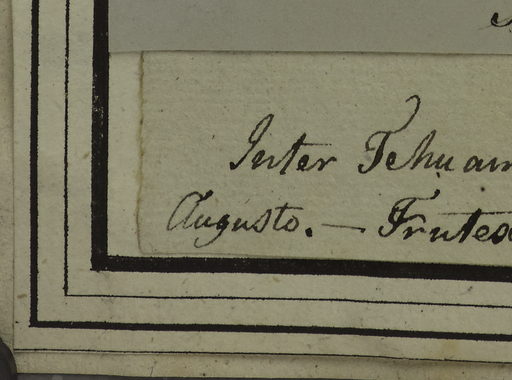 Inter Tehuam
Augusto. — Frutex